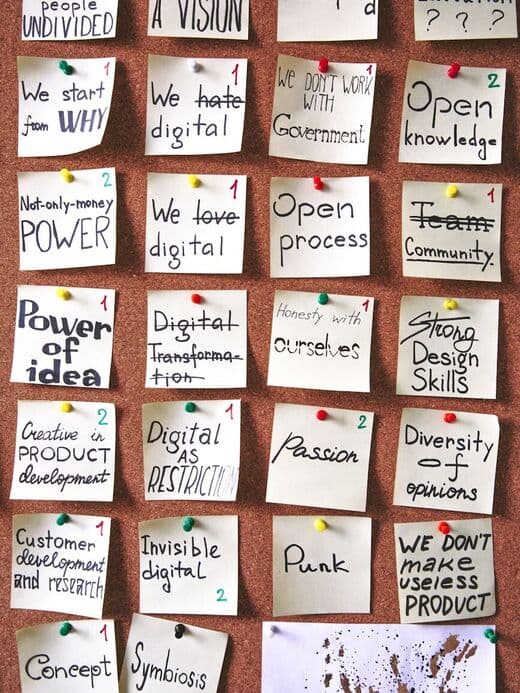 people
UNDIVIDED
A VISION
d
? ? ?
1
We start
from WHY
1
We hate
digital
1
WE DON'T WORK
WITH
Government
2
Open
knowledge
2
Not-only-money
POWER
1
We love
digital
Open
process
1
Team
Community.
1
Power
of
idea
Digital
Transforma-
tion
1
Honesty with
ourselves
Strong
Design
Skills
2
Creative in
PRODUCT
development
1
Digital
AS
RESTRICTION
2
Passion
Diversity
of
opinions
1
Customer
development
and research
Invisible
digital
2
Punk
WE DON'T
make
useless
PRODUCT
1
Concept
Symbiosis